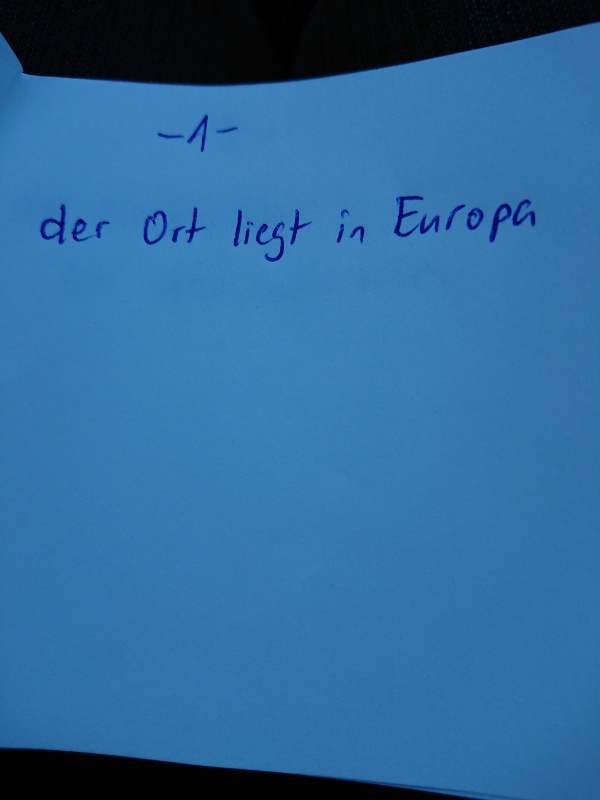 -1-
der Ort liegt in Europa